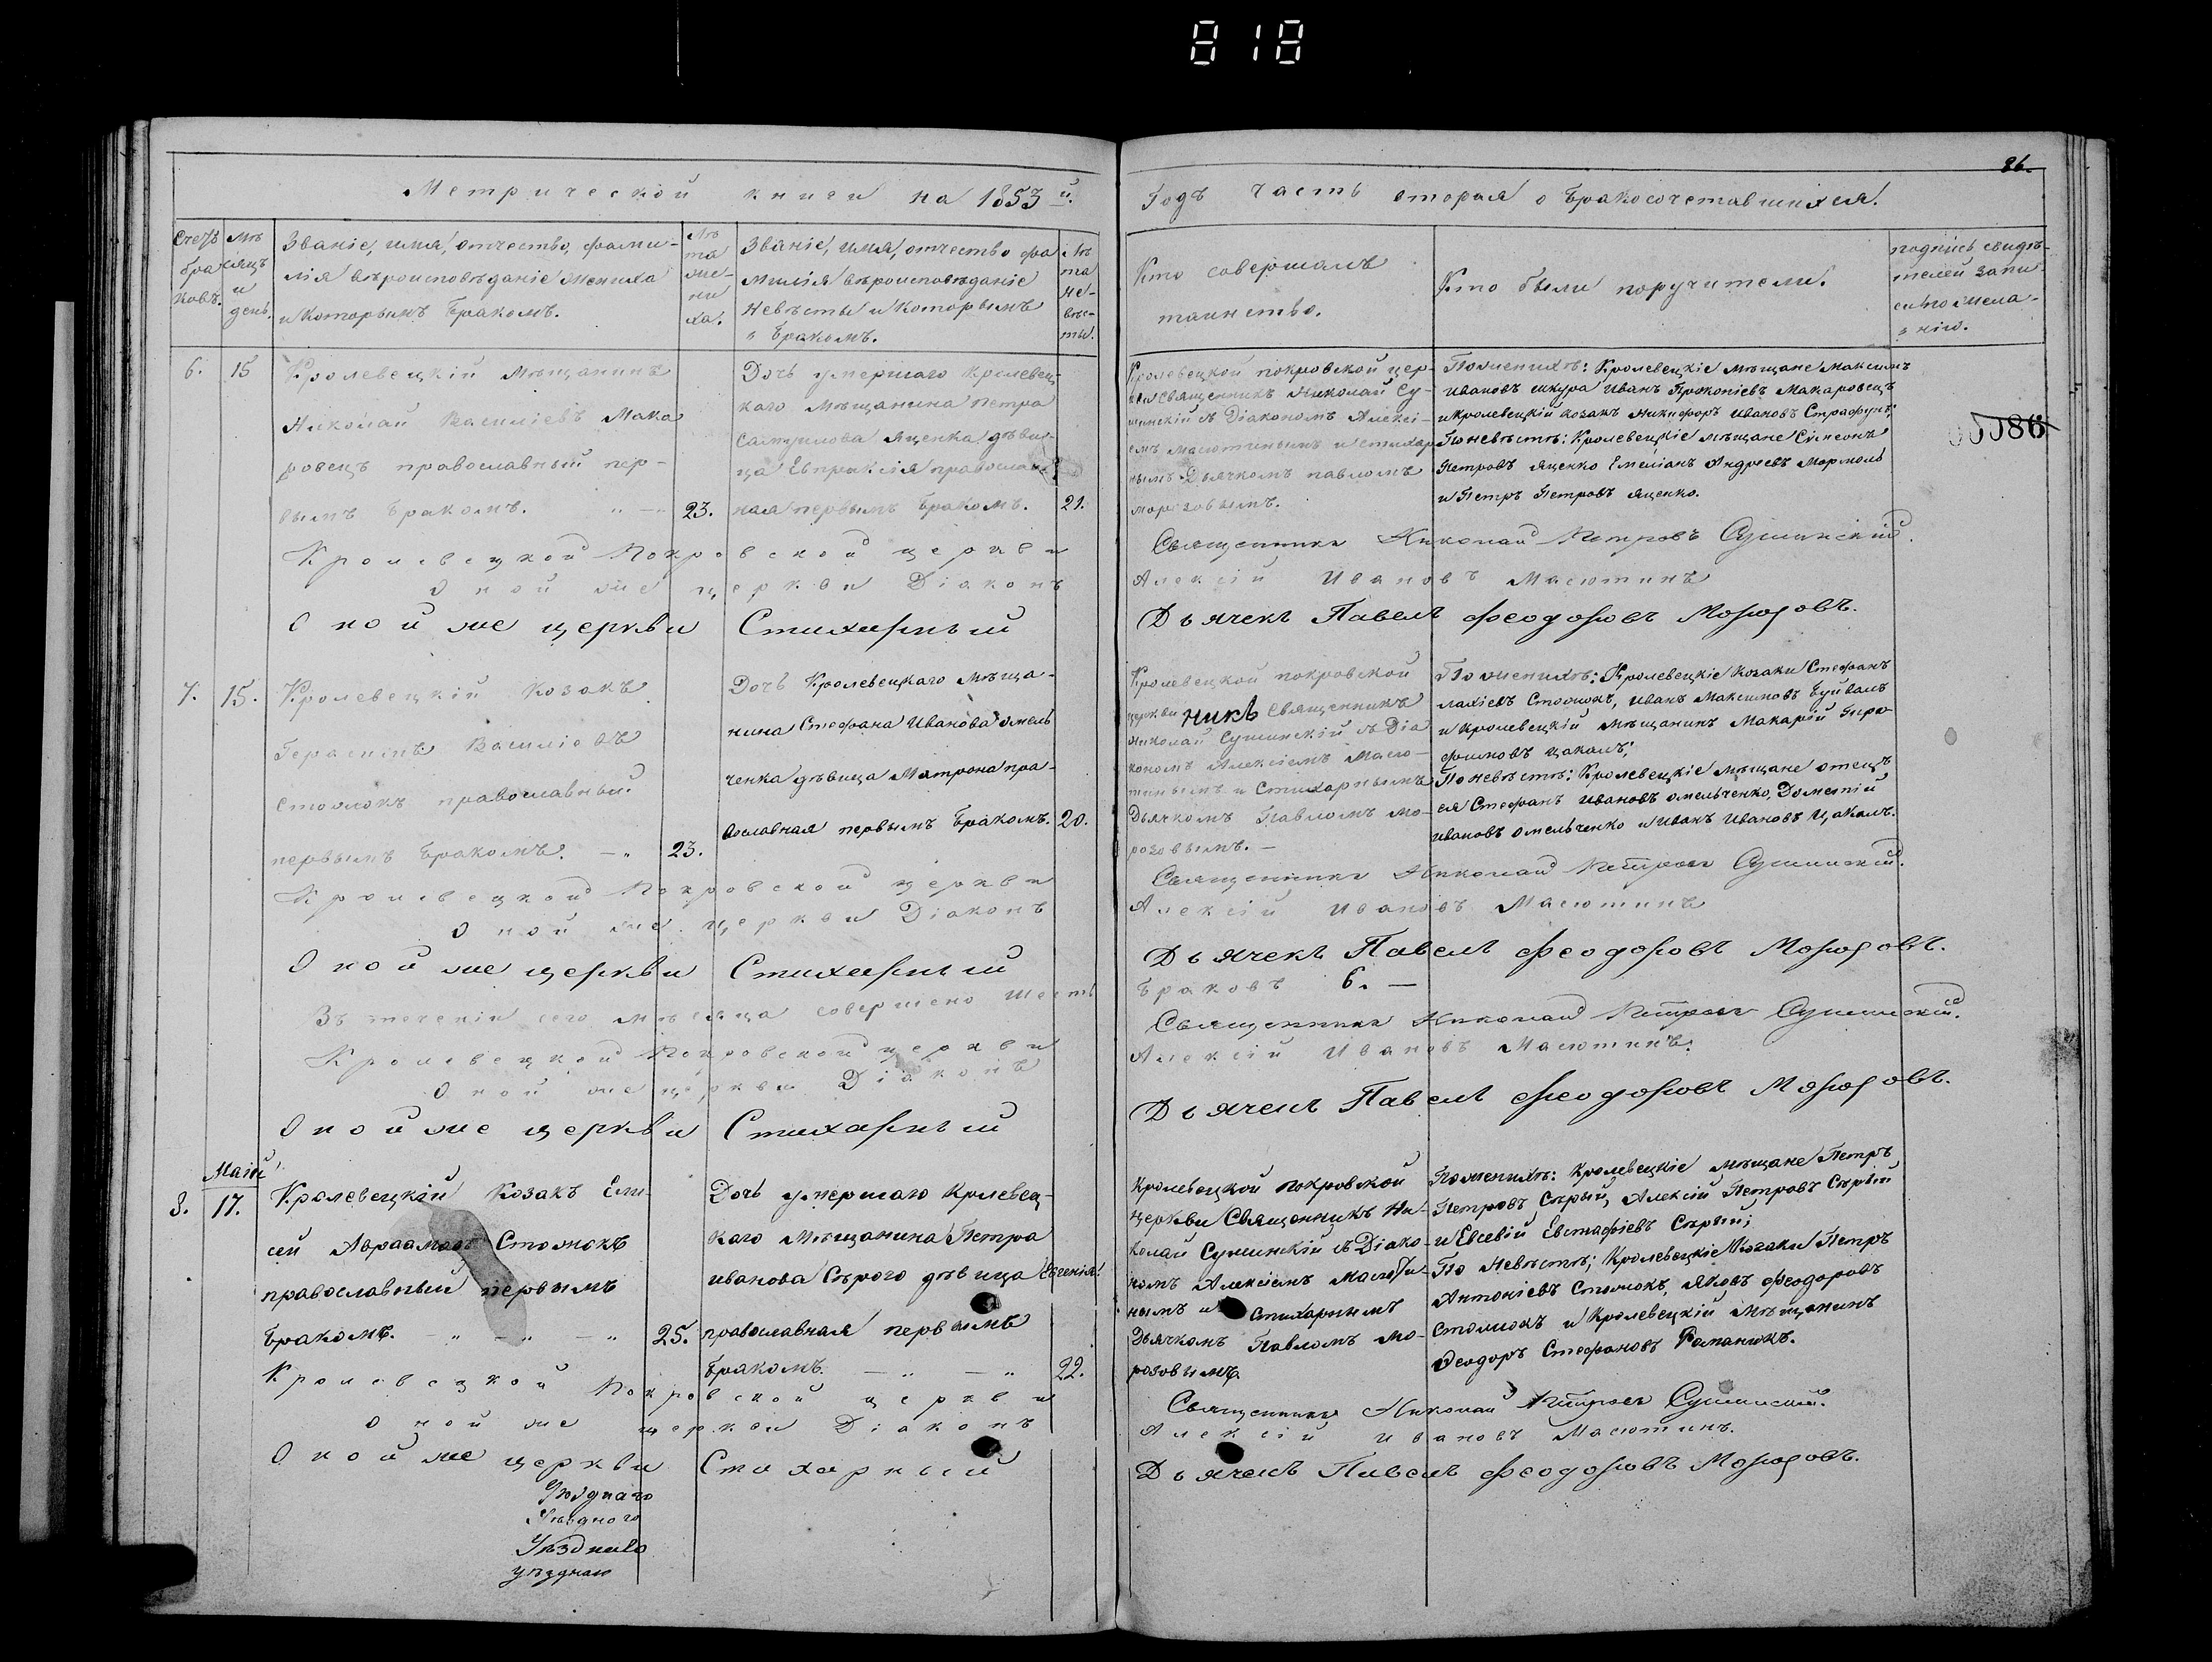 818
86.
Метрической книги на 1853й.
Годъ часть вторая о бракосочетавшихся.
Счетъ браковъ.
Мѣсяцъ и день.
Званіе, имя, отчество, фами-
лія вѣроисповѣданіе жениха
и которымъ бракомъ.
Лѣта жениха.
Званіе, имя, отчество фа
милія вѣроисповѣданіе
невѣсты и которымъ
бракомъ.
Лѣта невѣсты.
Кто совершалъ
таинство.
Кто были поручители.
подпись свидѣ-
телей запи
си по жела-
нію.
6. 15
Кролевецкій мѣщанинъ
Николай Василіевъ Мака
ровецъ православный пер-
вымъ бракомъ. 23.
Дочь умершаго кролевец-
каго мѣщанина Петра
Яценка дѣви-
ца Евпраксія православ-
ная первымъ бракомъ. 21.
Кролевецкой покровской цер-
кви священникъ Николай Су-
шинскій съ Діакономъ Алексі-
емъ Масютинымъ и стихар
нымъ Дьячкомъ павломъ
морозовымъ.
По женихѣ: Кролевецкіе мѣщане Максимъ
ивановъ шкура иванъ Прокопіевъ Макаровецъ
и кролевецкій козакъ никифоръ ивановъ
По невѣстѣ: Кролевецкіе мѣщане Симеонъ
Петровъ Яценко Емеліанъ Андреевъ Мормоль
и Петръ Петровъ Яценко.
86
Кролевецкой Покровской церкви Священникъ Николай Петровъ Сушинскій.
Оной же церкви Діаконъ Алексій Ивановъ Масютинъ
Оной же церкви Стихарный Дьячекъ Павелъ Феодоровъ Морозовъ.
7. 15.
Кролевецкій козакъ
Герасимъ Василіевъ
Стожокъ православный
первымъ бракомъ. 23.
Дочь Кролевецкаго мѣща-
нина Стефана Иванова омель
ченка дѣвица Матрона пра-
вославная первымъ бракомъ. 20.
Кролевецкой покровской
церкви никъ священникъ
николай Сушинскій съ Діа
кономъ Алексіемъ Масю-
тинымъ и Стихарнымъ
Дьячкомъ Павломъ мо-
розовымъ.
По женихѣ: Кролевецкіе козаки Стефанъ
Стожокъ, иванъ Максимовъ Буйвалъ
и кролевецкій мѣщанинъ Макарій
Цакалъ;
По невѣстѣ: Кролевецкіе мѣщане отецъ
ея Стефанъ ивановъ омельченко, Дометій
ивановъ омельченко и иванъ ивановъ Цакалъ.
Кролевецкой Покровской церкви Священникъ Николай Петровъ Сушинскій.
Оной же церкви Діаконъ Алексій Ивановъ Масютинъ
Оной же церкви Стихарный Дьячекъ Павелъ Феодоровъ Морозовъ.
Въ теченіи сего мѣсяца совершено шесть браковъ 6.
Кролевецкой Покровской церкви Священникъ Николай Петровъ Сушинскій.
Оной же церкви Діаконъ Алексій Ивановъ Масютинъ.
Оной же церкви Стихарный Дьячекъ Павелъ Феодоровъ Морозовъ.
Маій
8. 17.
Кролевецкій козакъ Ели-
сей Авраамовъ Стожокъ
православный первымъ
бракомъ. 25.
Дочь умершаго кролевец-
каго мѣщанина Петра
иванова Сѣрого дѣвица Евгенія
православная первымъ
бракомъ. 22.
Кролевецкой покровской
церкви Священникъ Ни-
колай Сушинскій съ Діако-
номъ Алексіемъ Масюти-
нымъ и Стихарнымъ
Дьячкомъ Павломъ мо-
розовымъ.
По женихѣ: кролевецкіе мѣщане Петръ
Петровъ Сѣрый, Алексій Петровъ Сѣрый
и Евсевій Евстафіевъ Сѣрый;
По Невѣстѣ; Кролевецкіе Козаки Петръ
Антоніевъ Стожокъ, Яковъ Феодоровъ
Стожокъ и Кролевецкій мѣщанинъ
Феодоръ Стефановъ Романюкъ.
Кролевецкой Покровской церкви Священникъ Николай Петровъ Сушинскій.
Оной же церкви Діаконъ Алексій Ивановъ Масютинъ.
Оной же церкви Стихарный Дьячекъ Павелъ Феодоровъ Морозовъ.
Уѣзднаго
Уѣздного
Уѣзднаго
уѣзднаго